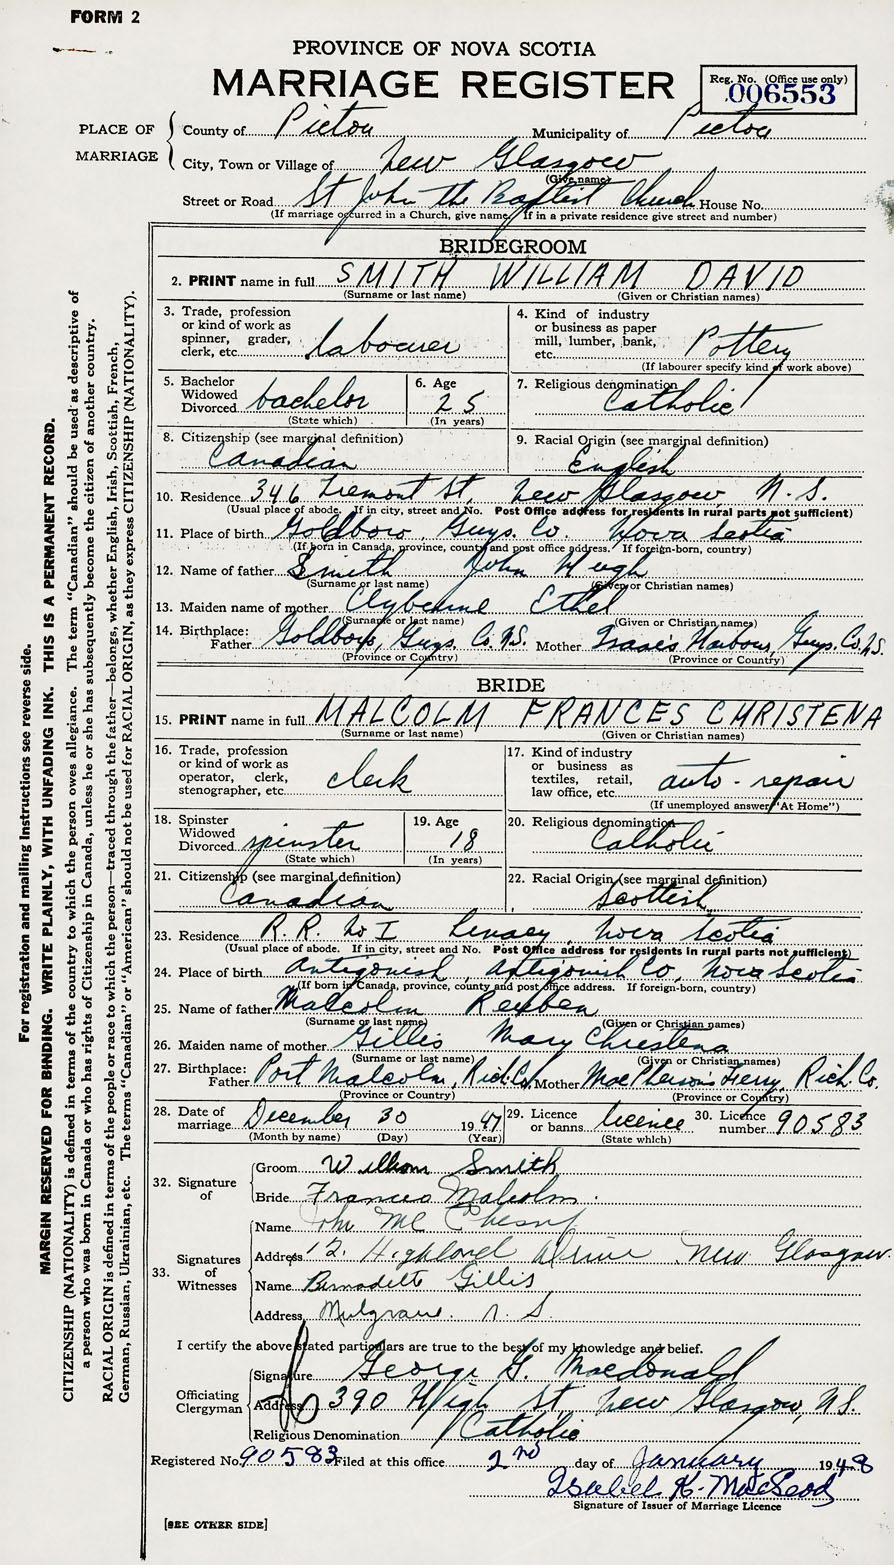 FORM 2
PROVINCE OF NOVA SCOTIA
MARRIAGE REGISTER
Reg. No. (Office use only)
006553
PLACE OF MARRIAGE
County of Pictou Municipality of Pictou
City, Town or Village of New Glasgow
(Give name)
Street or Road St John the Baptist Church House No.
(If marriage occurred in a Church, give name. If in a private residence give street and number)
BRIDEGROOM
2. PRINT name in full SMITH WILLIAM DAVID
(Surname or last name) (Given or Christian names)
3. Trade, profession or kind of work as spinner, grader, clerk, etc. labourer
4. Kind of industry or business as paper mill, lumber, bank, etc. Pottery
(If labourer specify kind of work above)
5. Bachelor Widowed Divorced bachelor
(State which)
6. Age 25
(In years)
7. Religious denomination Catholic
8. Citizenship (see marginal definition) Canadian
9. Racial Origin (see marginal definition) English
10. Residence 346 Tremont St, New Glasgow, N.S.
(Usual place of abode. If in city, street and No. Post Office address for residents in rural parts not sufficient)
11. Place of birth Goldboro, Guys. Co. Nova Scotia
(If born in Canada, province, county and post office address. If foreign-born, country)
12. Name of father Smith John Hugh
(Surname or last name) (Given or Christian names)
13. Maiden name of mother Clyburne Ethel
(Surname or last name) (Given or Christian names)
14. Birthplace: Father Goldboro, Guys. Co. N.S. Mother Isaac's Harbour, Guys. Co. N.S.
(Province or Country) (Province or Country)
BRIDE
15. PRINT name in full MALCOLM FRANCES CHRISTENA
(Surname or last name) (Given or Christian names)
16. Trade, profession or kind of work as operator, clerk, stenographer, etc. clerk
17. Kind of industry or business as textiles, retail, law office, etc. auto-repair
(If unemployed answer "At Home")
18. Spinster Widowed Divorced spinster
(State which)
19. Age 18
(In years)
20. Religious denomination Catholic
21. Citizenship (see marginal definition) Canadian
22. Racial Origin (see marginal definition) Scottish
23. Residence R.R. No I Linacy, Nova Scotia
(Usual place of abode. If in city, street and No. Post Office address for residents in rural parts not sufficient)
24. Place of birth Antigonish, Antigonish Co, Nova Scotia
(If born in Canada, province, county and post office address. If foreign-born, country)
25. Name of father Malcolm Reuben
(Surname or last name) (Given or Christian names)
26. Maiden name of mother Gillis Mary Christena
(Surname or last name) (Given or Christian names)
27. Birthplace: Father Port Malcolm, Rich. Co. Mother MacPherson's Ferry, Rich. Co.
(Province or Country) (Province or Country)
28. Date of marriage December 30 1947
(Month by name) (Day) (Year)
29. Licence or banns licence
(State which)
30. Licence number 90583
32. Signature of
Groom William Smith
Bride Frances Malcolm.
33. Signatures of Witnesses
Name John
Address 12. Highland Drive New Glasgow
Name Bernadette Gillis
Address Mulgrave. N. S.
I certify the above stated particulars are true to the best of my knowledge and belief.
Officiating Clergyman
Signature George G. Macdonald
Address 390 High St, New Glasgow, N.S.
Religious Denomination Catholic
Registered No. 90583 Filed at this office 2nd day of January 1948
Isabel K. MacLeod
Signature of Issuer of Marriage Licence
[SEE OTHER SIDE]
For registration and mailing instructions see reverse side.
MARGIN RESERVED FOR BINDING. WRITE PLAINLY, WITH UNFADING INK. THIS IS A PERMANENT RECORD.
CITIZENSHIP (NATIONALITY) is defined in terms of the country to which the person owes allegiance. The term "Canadian" should be used as descriptive of
a person who was born in Canada or who has rights of Citizenship in Canada, unless he or she has subsequently become the citizen of another country.
RACIAL ORIGIN is defined in terms of the people or race to which the person—traced through the father—belongs, whether English, Irish, Scottish, French,
German, Russian, Ukrainian, etc. The terms "Canadian" or "American" should not be used for RACIAL ORIGIN, as they express CITIZENSHIP (NATIONALITY).